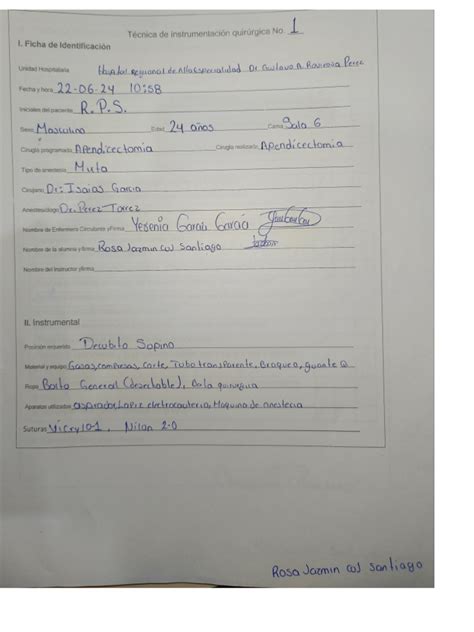 Técnica de instrumentación quirúrgica No. 1
I. Ficha de Identificación
Unidad Hospitalaria Hospital Regional de Alta especialidad Dr. Gustavo A. Rovirosa Perez
Fecha y hora 22-06-24 10:58
Iniciales del paciente R.P.S.
Sexo Masculino Edad 24 años Cama Sala 6
Cirugía programada Apendicectomia Cirugía realizada Apendicectomia
Tipo de anestesia Mixta
Cirujano Dr: Isaias Garcia
Anestesiólogo Dr. Perez Torrez
Nombre de Enfermero Circulante y Firma Yesenia Garcia
Nombre de la alumna y firma Rosa Jazmin Santiago
Nombre del instructor y firma
II. Instrumental
Posición requerida Decubito Sopino
Material y equipo Gasas, compresas, Tubo transparente, guante
Ropa Bulto General (desechable), Bata quirurgica
Aparatos utilizados aspirador, Lapiz electrocauterio, Maquina de anestecia
Suturas Vicryl 0-1, Nilon 2-0
Rosa Jazmin Santiago